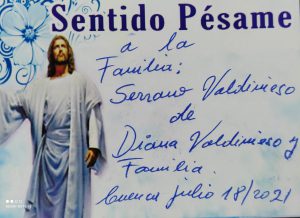 Sentido Pésame
a la
Familia;
Serrano Valdivieso
de
Diana Valdivieso y
Familia.
Cuenca julio 18/2021